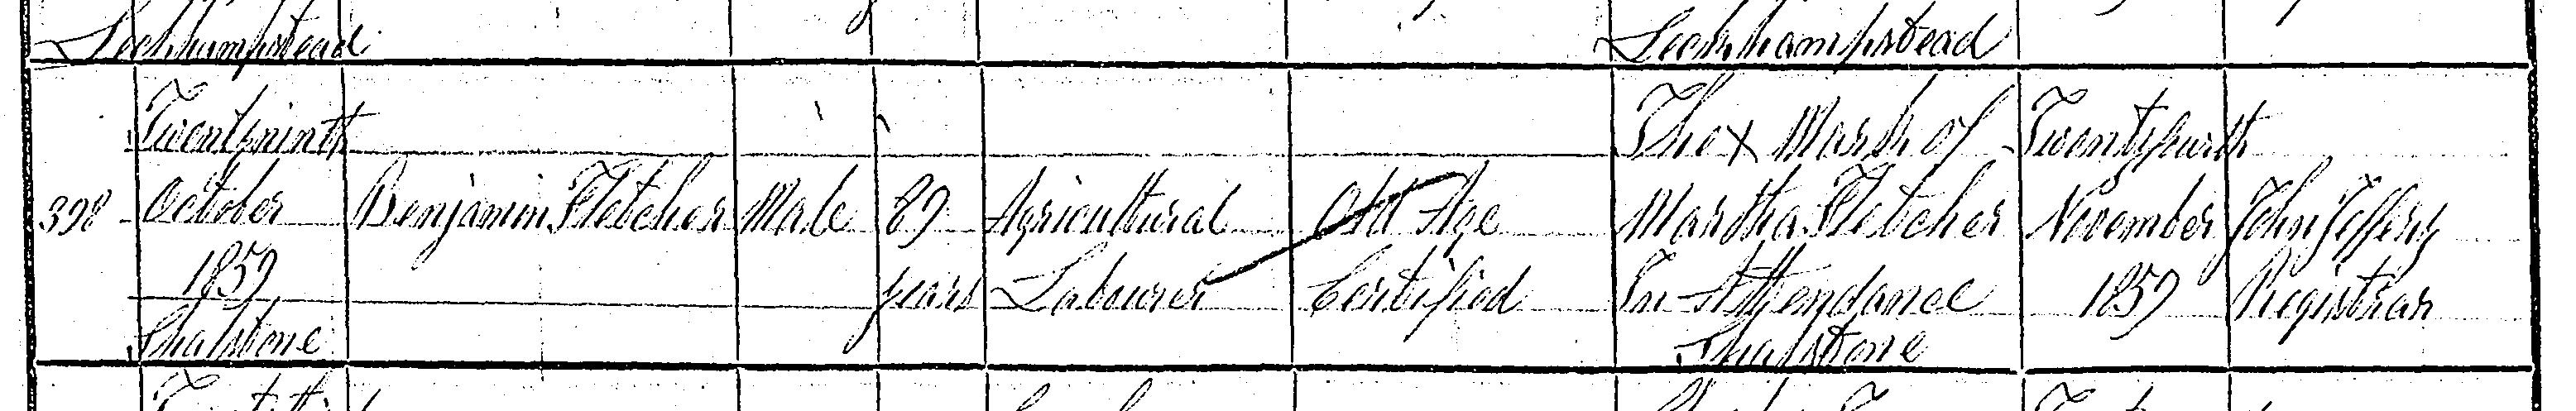 Leckhampstead
Leckhampstead
Twentyninth
October
1859
398
Benjamin Fletcher
Male
89
years
Agricultural
Labourer
Old Age
Certified
The X Mark of
Martha Fletcher
In Attendance
Twentyfourth
November
1859
John Jeffery
Registrar